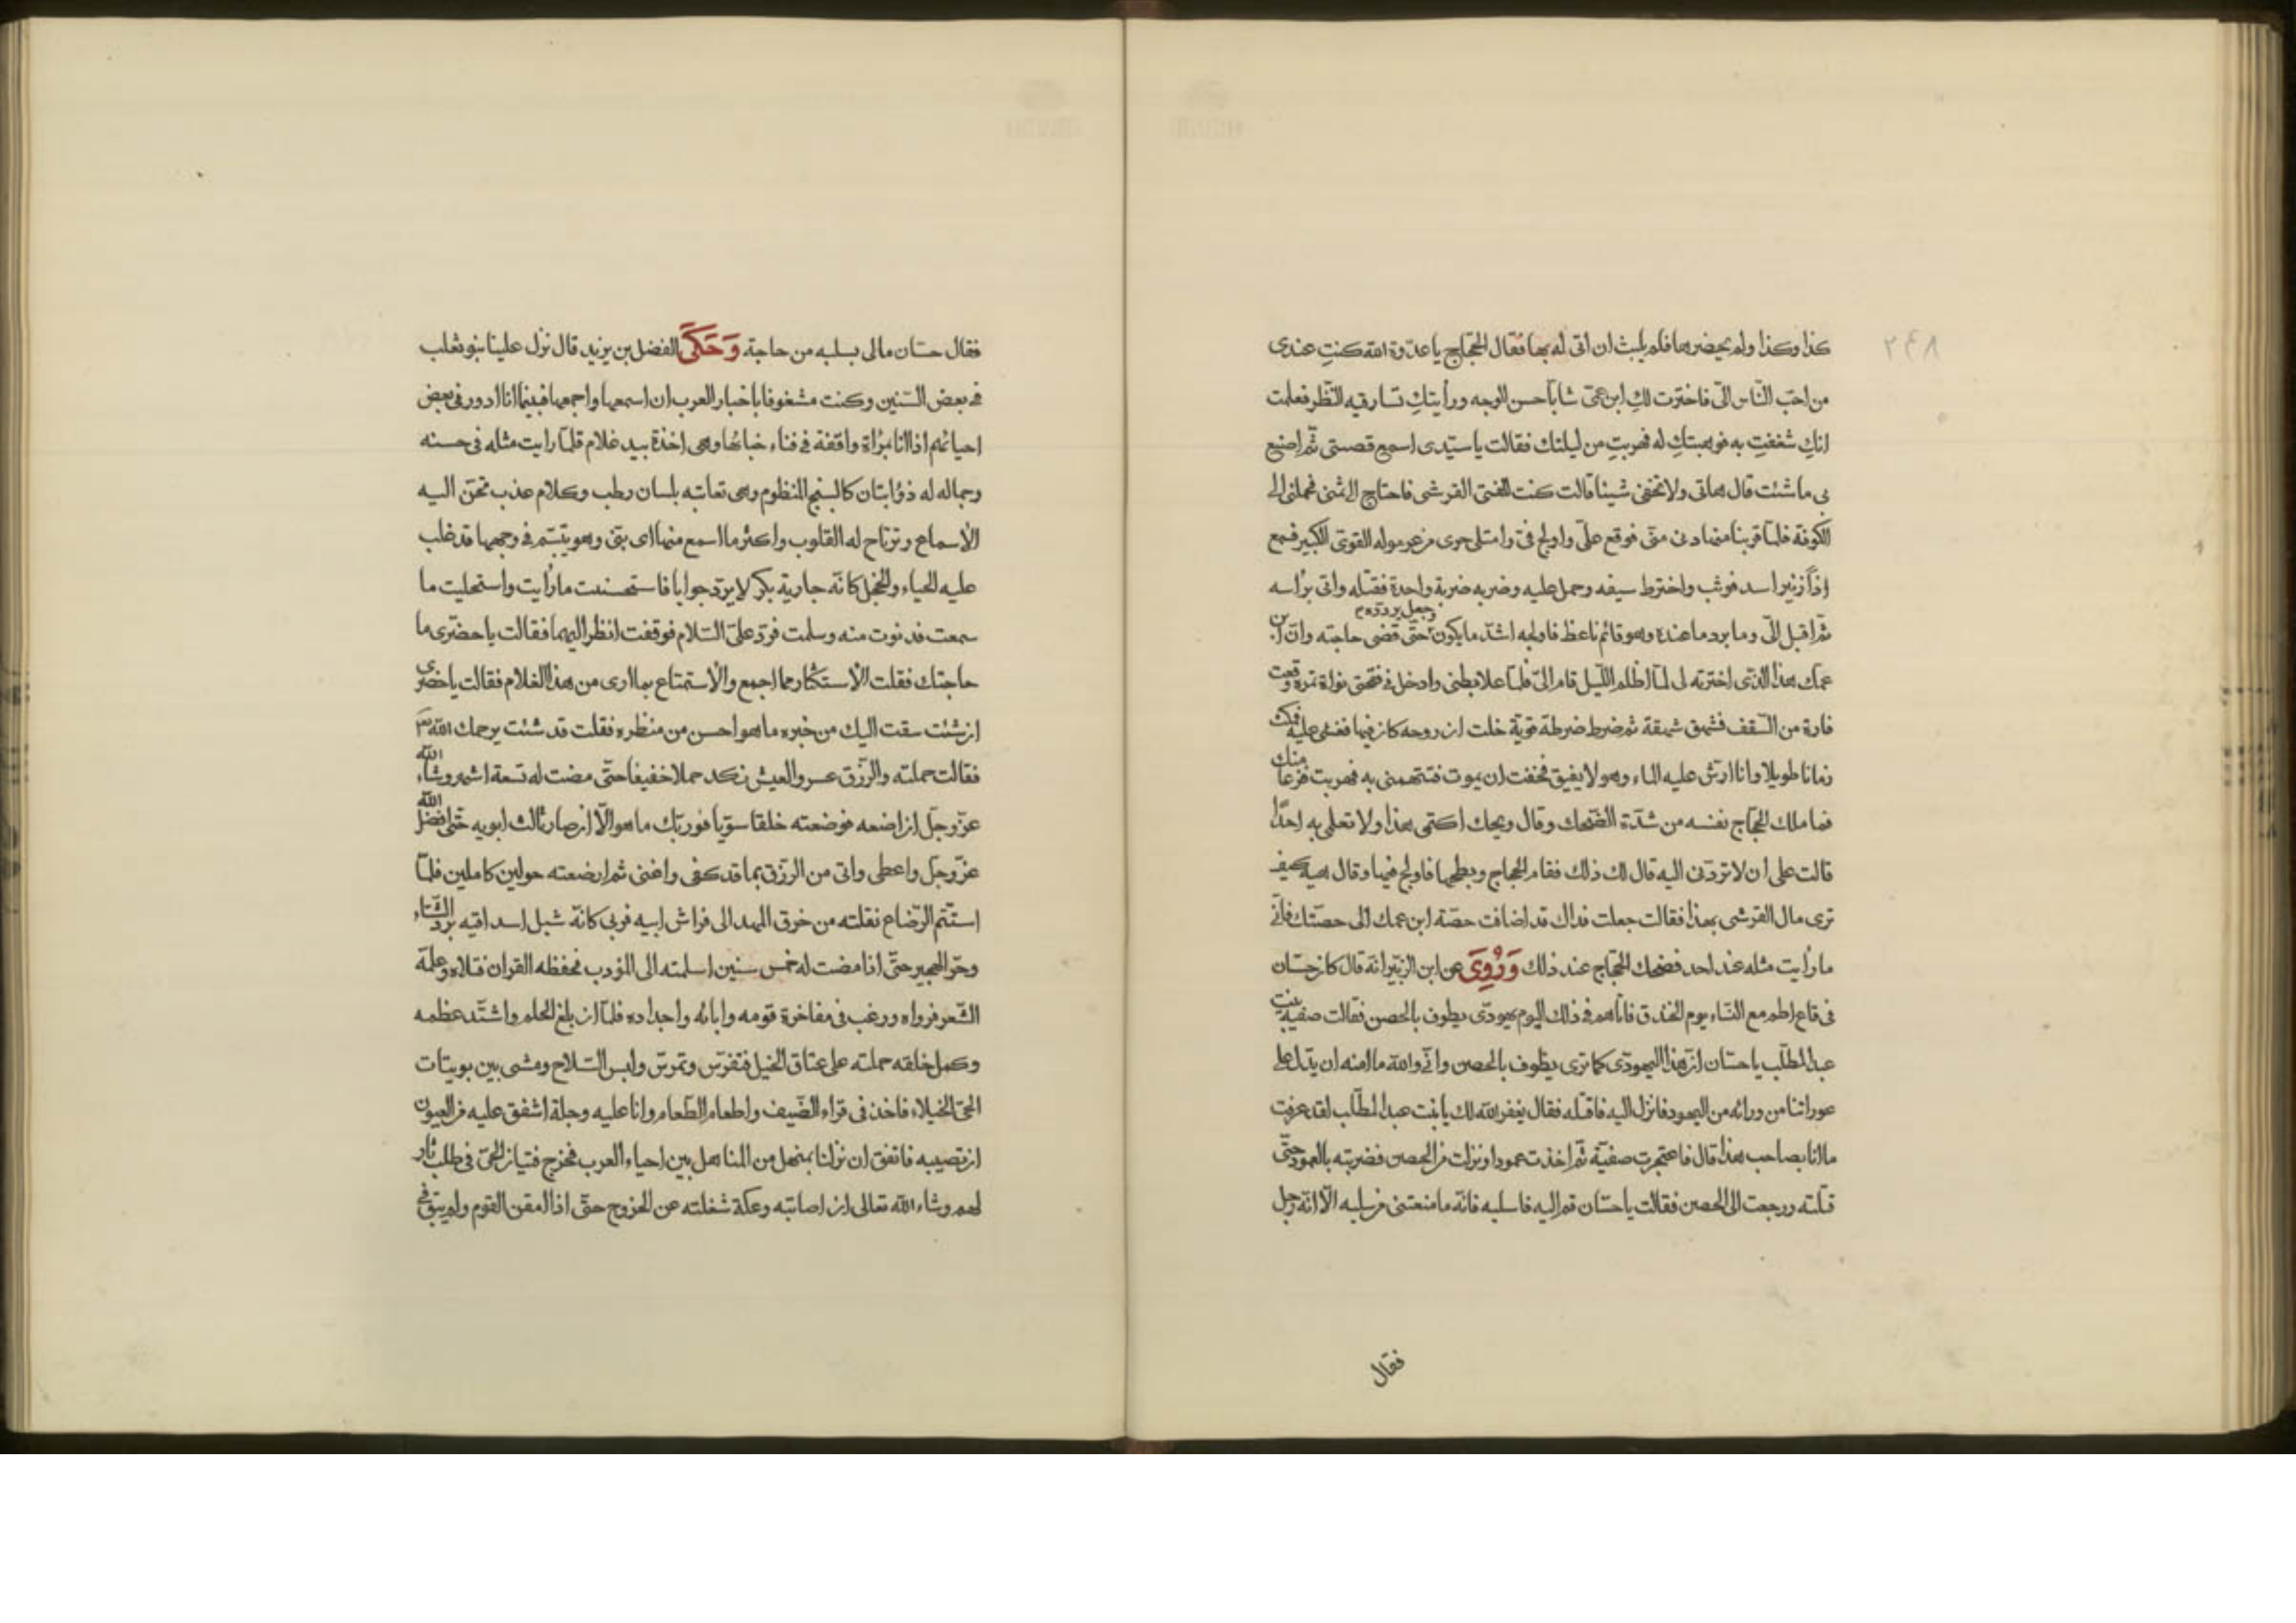 ٢٤٨
كذا وكذا ولم يحضر بها فلم يلبث ان اتى له بها فقال الحجّاج يا عدّوة الله كنتِ عندى
من احبّ النّاس الىّ فاخترت لكِ ابن عمّى شاباً حسن الوجه ورأيتكِ تسارقيه النّظر فعلمت
انكِ شغفتِ به فوهبتكِ له فهربتِ من ليلتك فقالت يا سيّدى اسمع قصتى ثمّ اصنع
بى ما شئت قال هاتى ولا تخفى شيئا قالت كنت للفتى القرشى فاحتاج الى ثمنى فحملنى الى
الكوفة فلمّا قربنا منها دنى منّى فوقع علىّ واولج فىّ وامتلى حرى من غرموله القوىّ الكبير فسمع
اذاً زئير اسد فوثب واخترط سيفه وحمل عليه وضربه ضربة واحدة فقتله واتى برأسه
ثمّ اقبل الىّ وما برد ما عنده وهو قائم ناعظ فاولجه اشدّ ما يكون وجعل يردّده حتّى قضى حاجته وانّ ابن
عمّك هذا الذى اخترته لى لمّا اظلم اللّيل قام الىّ فلمّا علا بطنى وادخل فى فتحتى نواة تمره وقعت
فارة من السّقف فشهق شهقة ثم ضرط ضرطة قويّة خلت ان روحه كان فيها فغشى عليه فمكث
زمانا طويلا وانا ارشّ عليه الماء وهو لا يفيق فخفت ان يموت فتتهمنى به فهربت فزعا منك
فما ملك الحجّاج نفسه من شدّة الضّحك وقال ويحك اكتمى هذا ولا تعلمى به احدًا
قالت على ان لا تردّنى اليه قال لك ذلك فقام الحجاج وبطحها فاولج فيها وقال هيه كيف
ترى مال القرشى بهذا فقالت جعلت فداك قد اضافت حصّة ابن عمك الى حصّتك فانّى
ما رأيت مثله عند احد فضحك الحجّاج عند ذلك وَرُوِىَ عن ابن الزبير انّه قال كان حسّان
فى قاع اطم مع النّساء يوم الخندق فاتاهم فى ذلك اليوم يهودّى يطوف بالحصن فقالت صفيّة بنت
عبد المطّلب يا حسّان انّ هذا اليهودّى كما ترى يطوف بالحصن وانّى والله ما امنه ان يدّل على
عوراتنا من ورائه من اليهود فانزل اليه فاقتله فقال يغفر الله لك يا بنت عبد المطّلب لقد عرفت
ما انا بصاحب هذا قال فاعتجرت صفيّة ثمّ اخذت عمودا ونزلت من الحصن فضربته بالعمود حتّى
قتلته ورجعت الى الحصن فقالت يا حسّان قم اليه فاسلبه فانّه ما منعتنى من سلبه الّا انّه رجل
فقال
فقال حسّان مالى بسلبه من حاجة وَحَكَى الفضل بن يزيد قال نزل علينا بنو تغلب
فى بعض السّنين وكنت مشغوفا باخبار العرب ان اسمعها واجمعها فبينما انا ادور فى بعض
احيائهم اذا انا بمرأة واقفة فى فناء خبائها وهى اخذة بيد غلام قلمّا رايت مثله فى حسنه
وجماله له ذؤابتان كالسبج المنظوم وهى تعاتبه بلسان رطب وكلام عذب تحنّ اليه
الأسماع وترتاح له القلوب واكثر ما اسمع منها اى بنىّ وهو يتبسّم فى وجهها قد غلب
عليه الحياء والخجل كانّه جارية بكر لا يردّ جوابا فاستحسنت ما رأيت واستحليت ما
سمعت فدنوت منه وسلمت فردّ علىّ السّلام فوقفت انظر اليهما فقالت يا حضرى ما
حاجتك فقلت الأستكثار مما اجمع والأستمتاع بما ارى من هذا الغلام فقالت يا حضرى
ان شئت سقت اليك من خبره ما هو احسن من منظره فقلت قد شئت يرحمك الله
فقالت حملته والرّزق عسر والعيش نكد حملا خفيفا حتّى مضت له تسعة اشهر وشاء الله
عزّ وجلّ ان اضعه فوضعته خلقا سويّا فوربّك ما هو الّا ان صار ثالث ابويه حتّى افضل الله
عزّ وجلّ واعطى واتى من الرزق بما قد كفى واغنى ثم ارضعته حولين كاملين فلمّا
استّتم الرّضاع نقلته من خرق المهد الى فراش ابيه فربى كانّه شبل اسد اقيه برد الشّتاء
وحرّ الهجير حتّى اذا مضت له خمس سنين اسلمته الى المؤدب فحفظه القران فتلاه وعلمّه
الشّعر فرواه ورغب فى مفاخرة قومه وابائه واجداده فلمّا ان بلغ الحلم واشتّد عظمه
وكمل خلقه حملته على عتاق الخيل فتفرّس وتمرّس ولبس السّلاح ومشى بين بويتات
الحىّ الخيلاء فاخذ فى قراء الضّيف واطعام الطّعام وانا عليه وجلة اشفق عليه من العيون
ان تصيبه فاتفق ان نزلنا بمنهل من المناهل بين احياء العرب فخرج فتيان الحىّ فى طلب ثار
لهم وشاء الله تعالى ان اصابته وعكة شغلته عن الخروج حتّى اذا امعن القوم ولم يبق فى